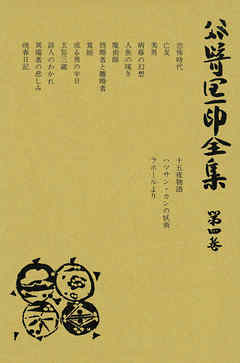 谷崎潤一郎全集
第四巻
恐怖時代
亡友
美男
病蓐の幻想
人魚の嘆き
魔術師
既婚者と離婚者
鶯姫
或る男の半日
玄奘三蔵
詩人のわかれ
異端者の悲しみ
晩春日記
十五夜物語
ハツサン・カンの妖術
ラホールより